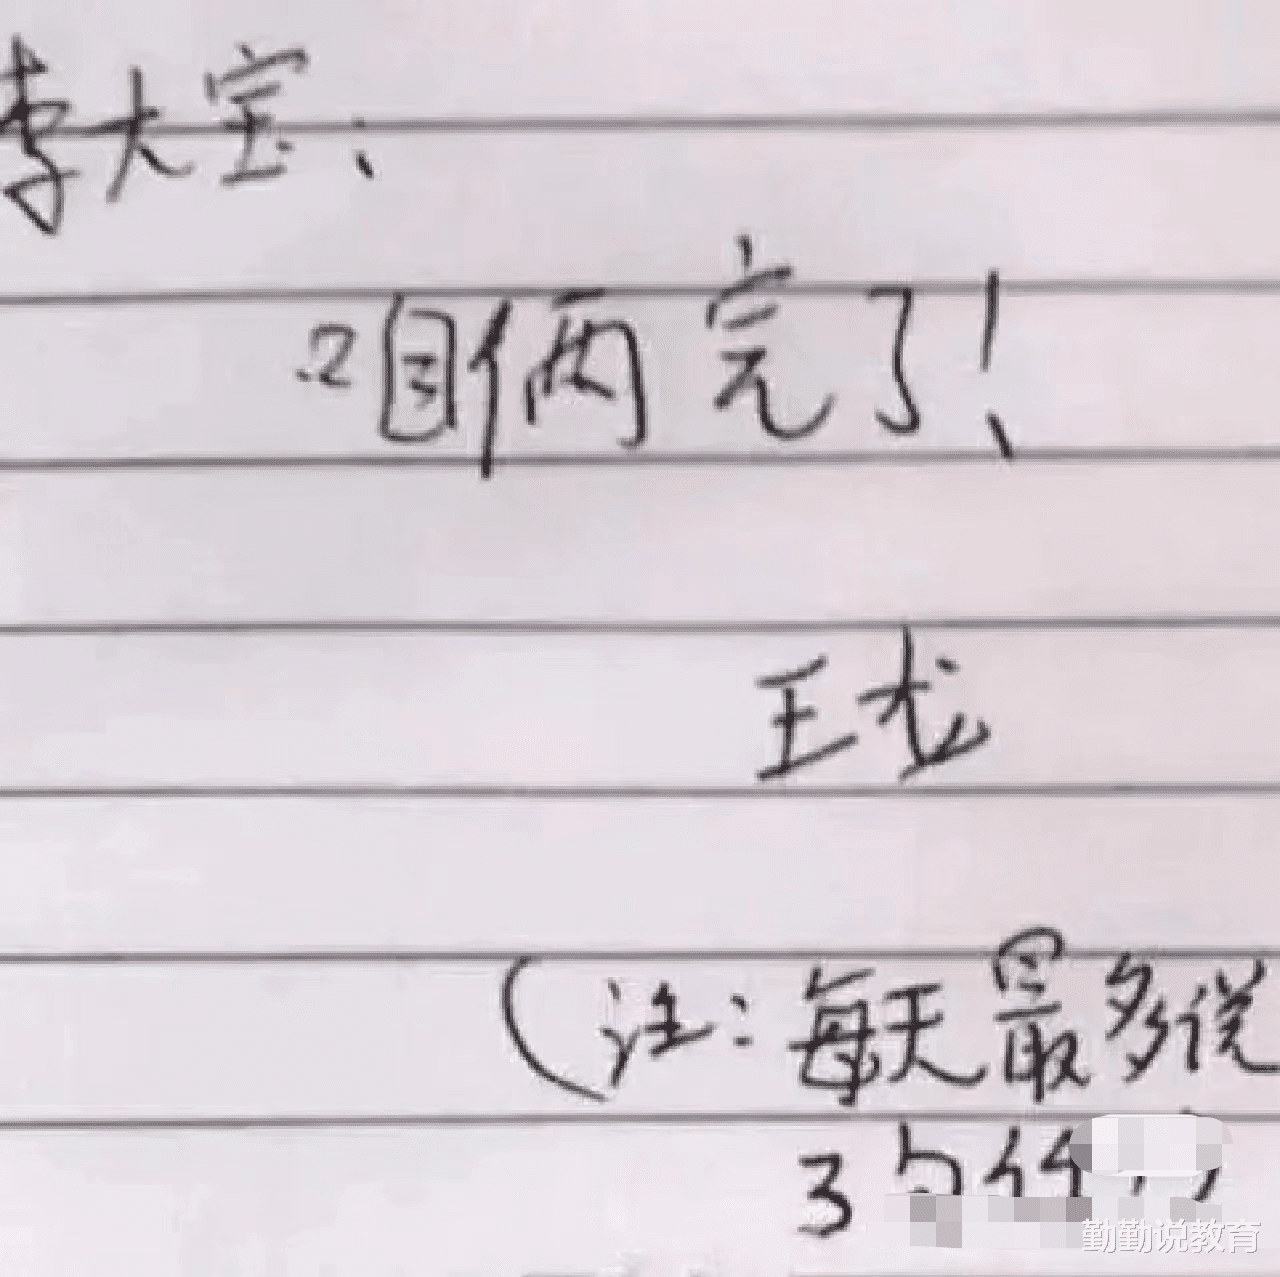 李大宝:
咱俩完了!
王龙
(注:每天最多说
3句
勤勤说教育